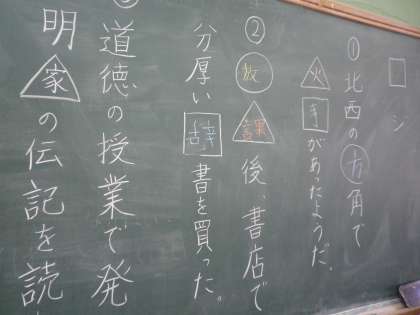 □ジ
①北西の方角で
火事があったようだ。
②放課後、書店で
分厚い辞書を買った。
道徳の授業で発
明家の伝記を読